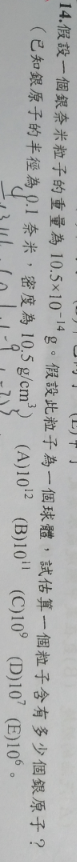 14.假設一個銀奈米粒子的重量為 10.5×10⁻¹⁴ g。假設此粒子為一個球體，試估算一個粒子含有多少個銀原子？
（已知銀原子的半徑為 0.1 奈米，密度為 10.5 g/cm³） (A)10¹² (B)10¹¹ (C)10⁹ (D)10⁷ (E)10⁶。